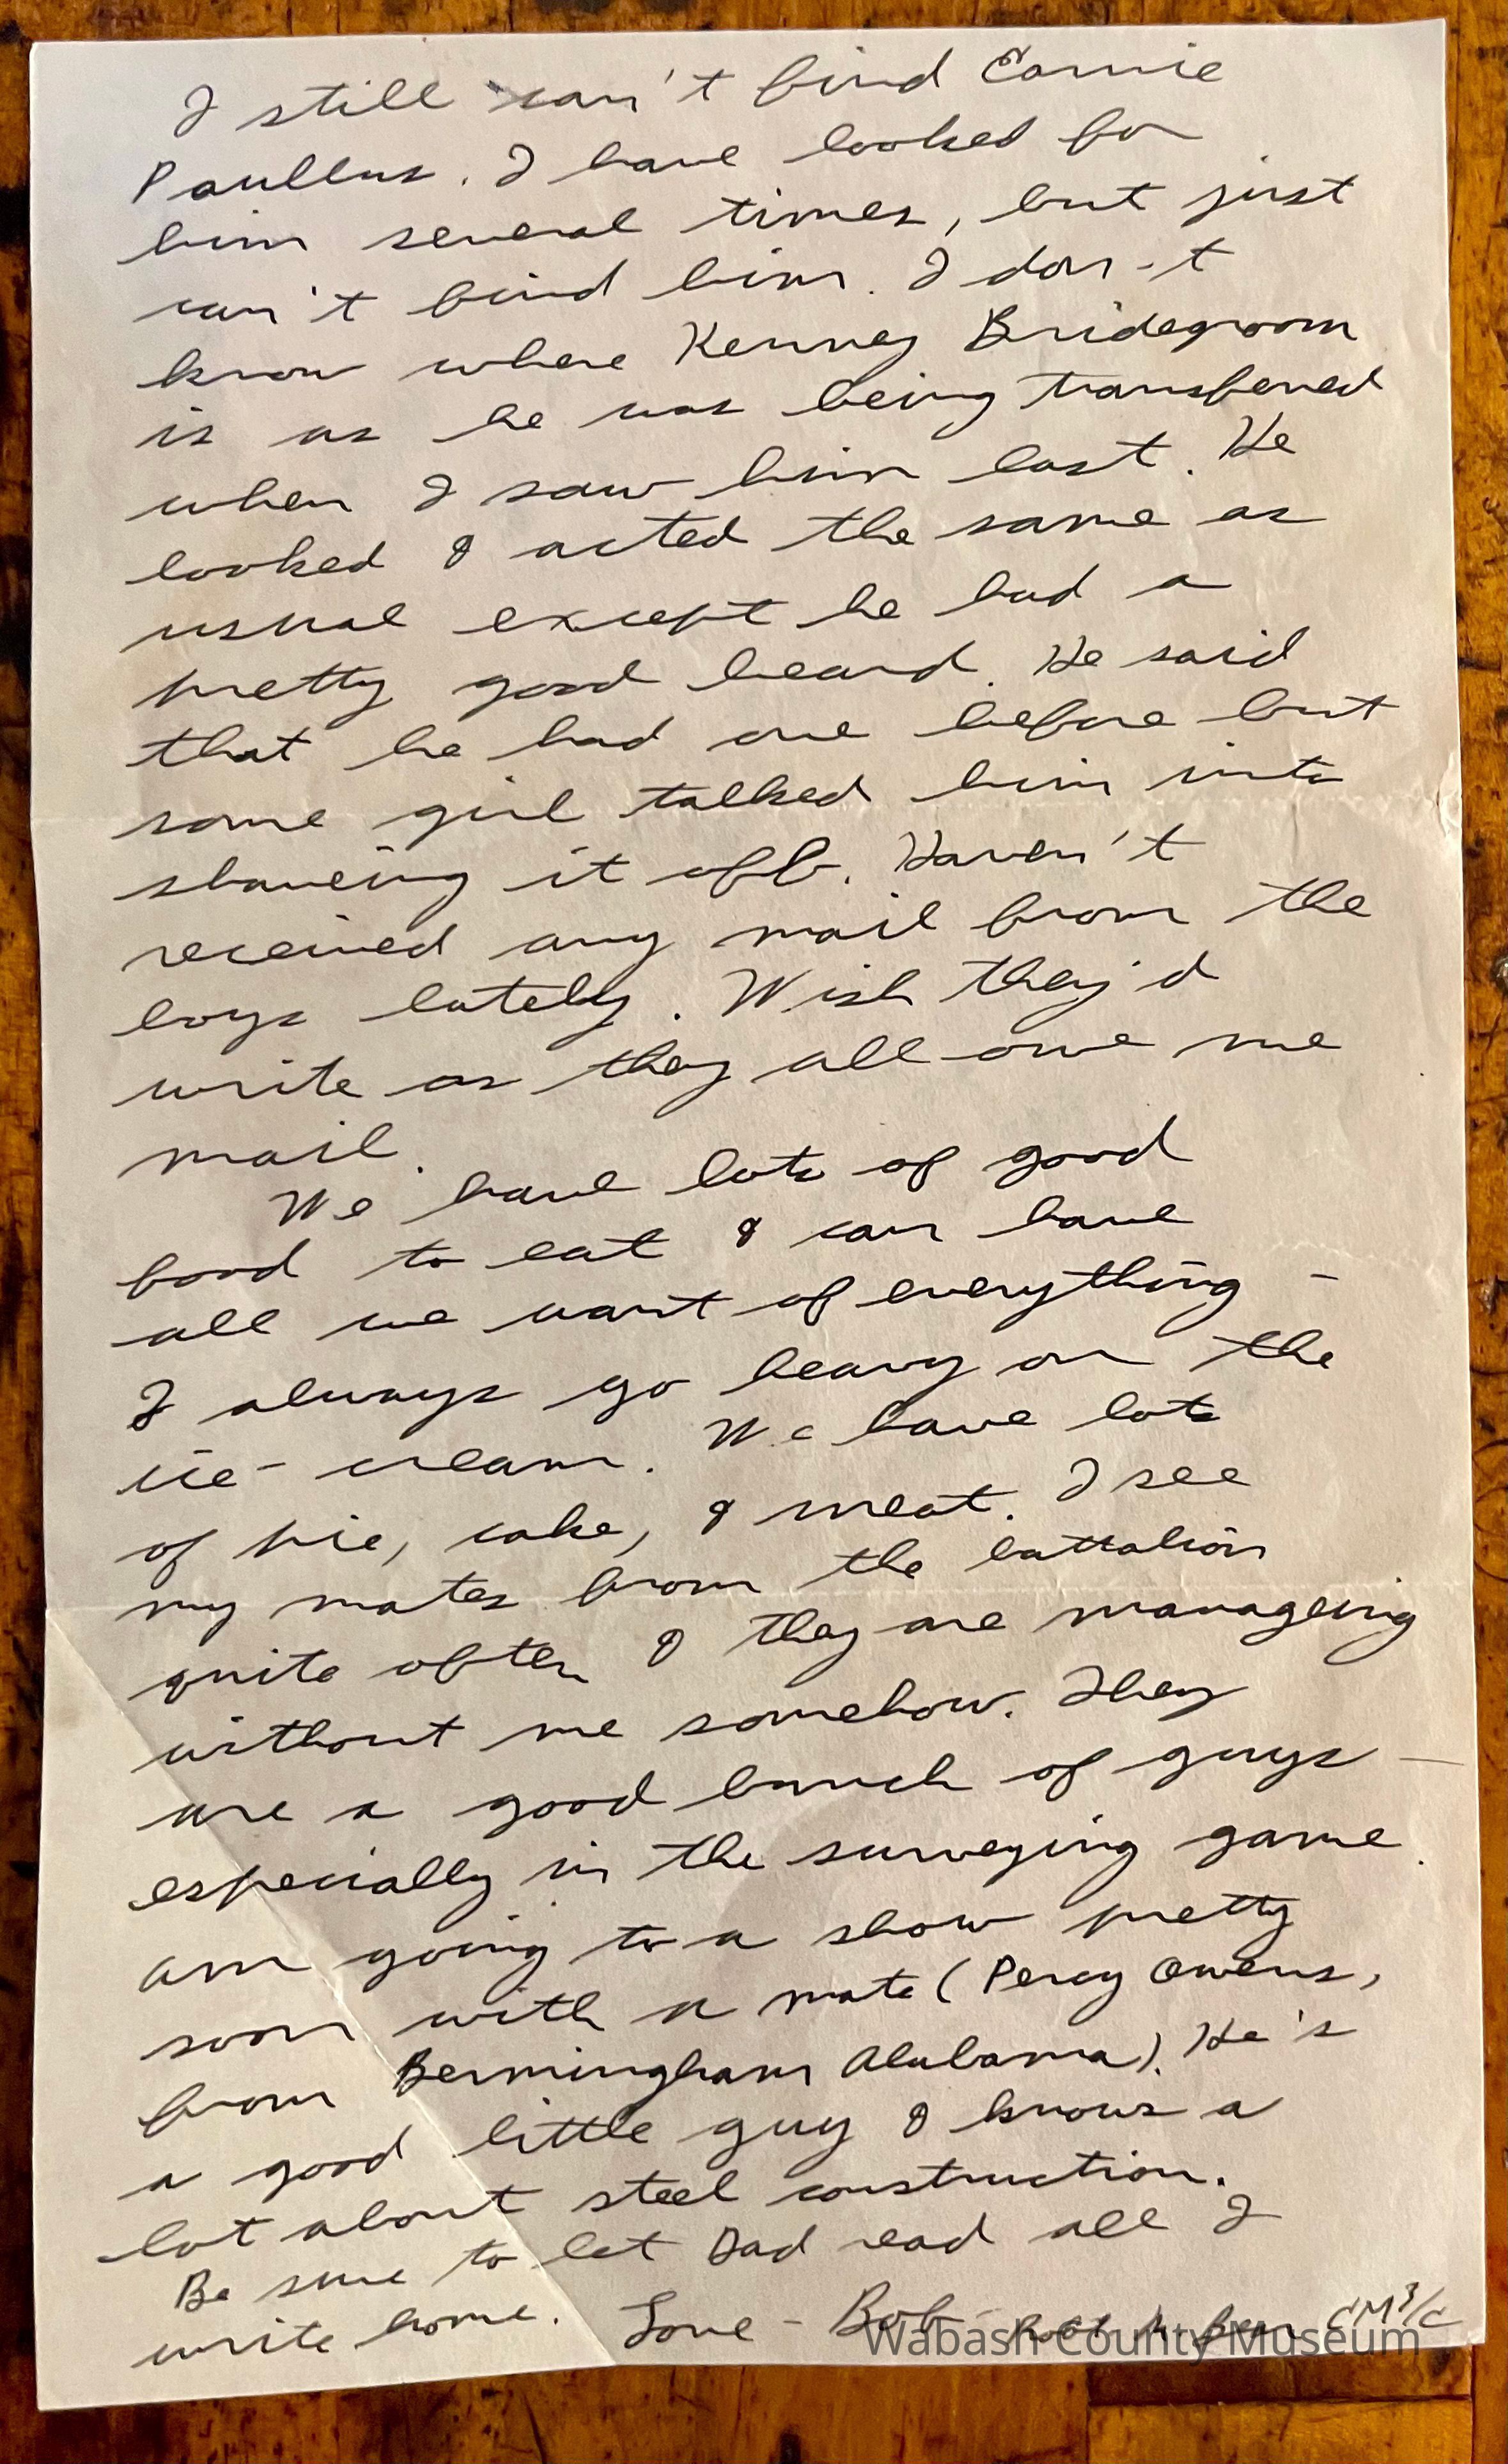 I still can't find
Paullus. I have looked for
him several times, but just
can't find him. I don-t
know where Kenney Bridegroom
is as he was being transfered
when I saw him last. He
looked & acted the same as
usual except he had a
pretty good beard. He said
that he had one before but
some girl talked him into
shaveing it off. Haven't
received any mail from the
boys lately. Wish they'd
write as they all owe me
mail.
We have lots of good
food to eat & can have
all we want of everything -
I always go heavy on the
ice-cream. We have lots
of pie, cake, & meat. I see
my mates from the battalion
quite often & they are manageing
without me somehow. They
are a good bunch of guys -
especially in the surveying game.
am going to a show pretty
soon with a mate (Percy Owens,
from Bermingham Alabama). He's
a good little guy & knows a
lot about steel construction.
Be sure to let Dad read all I
write home. Love - Bob - CM3/c
Wabash County Museum